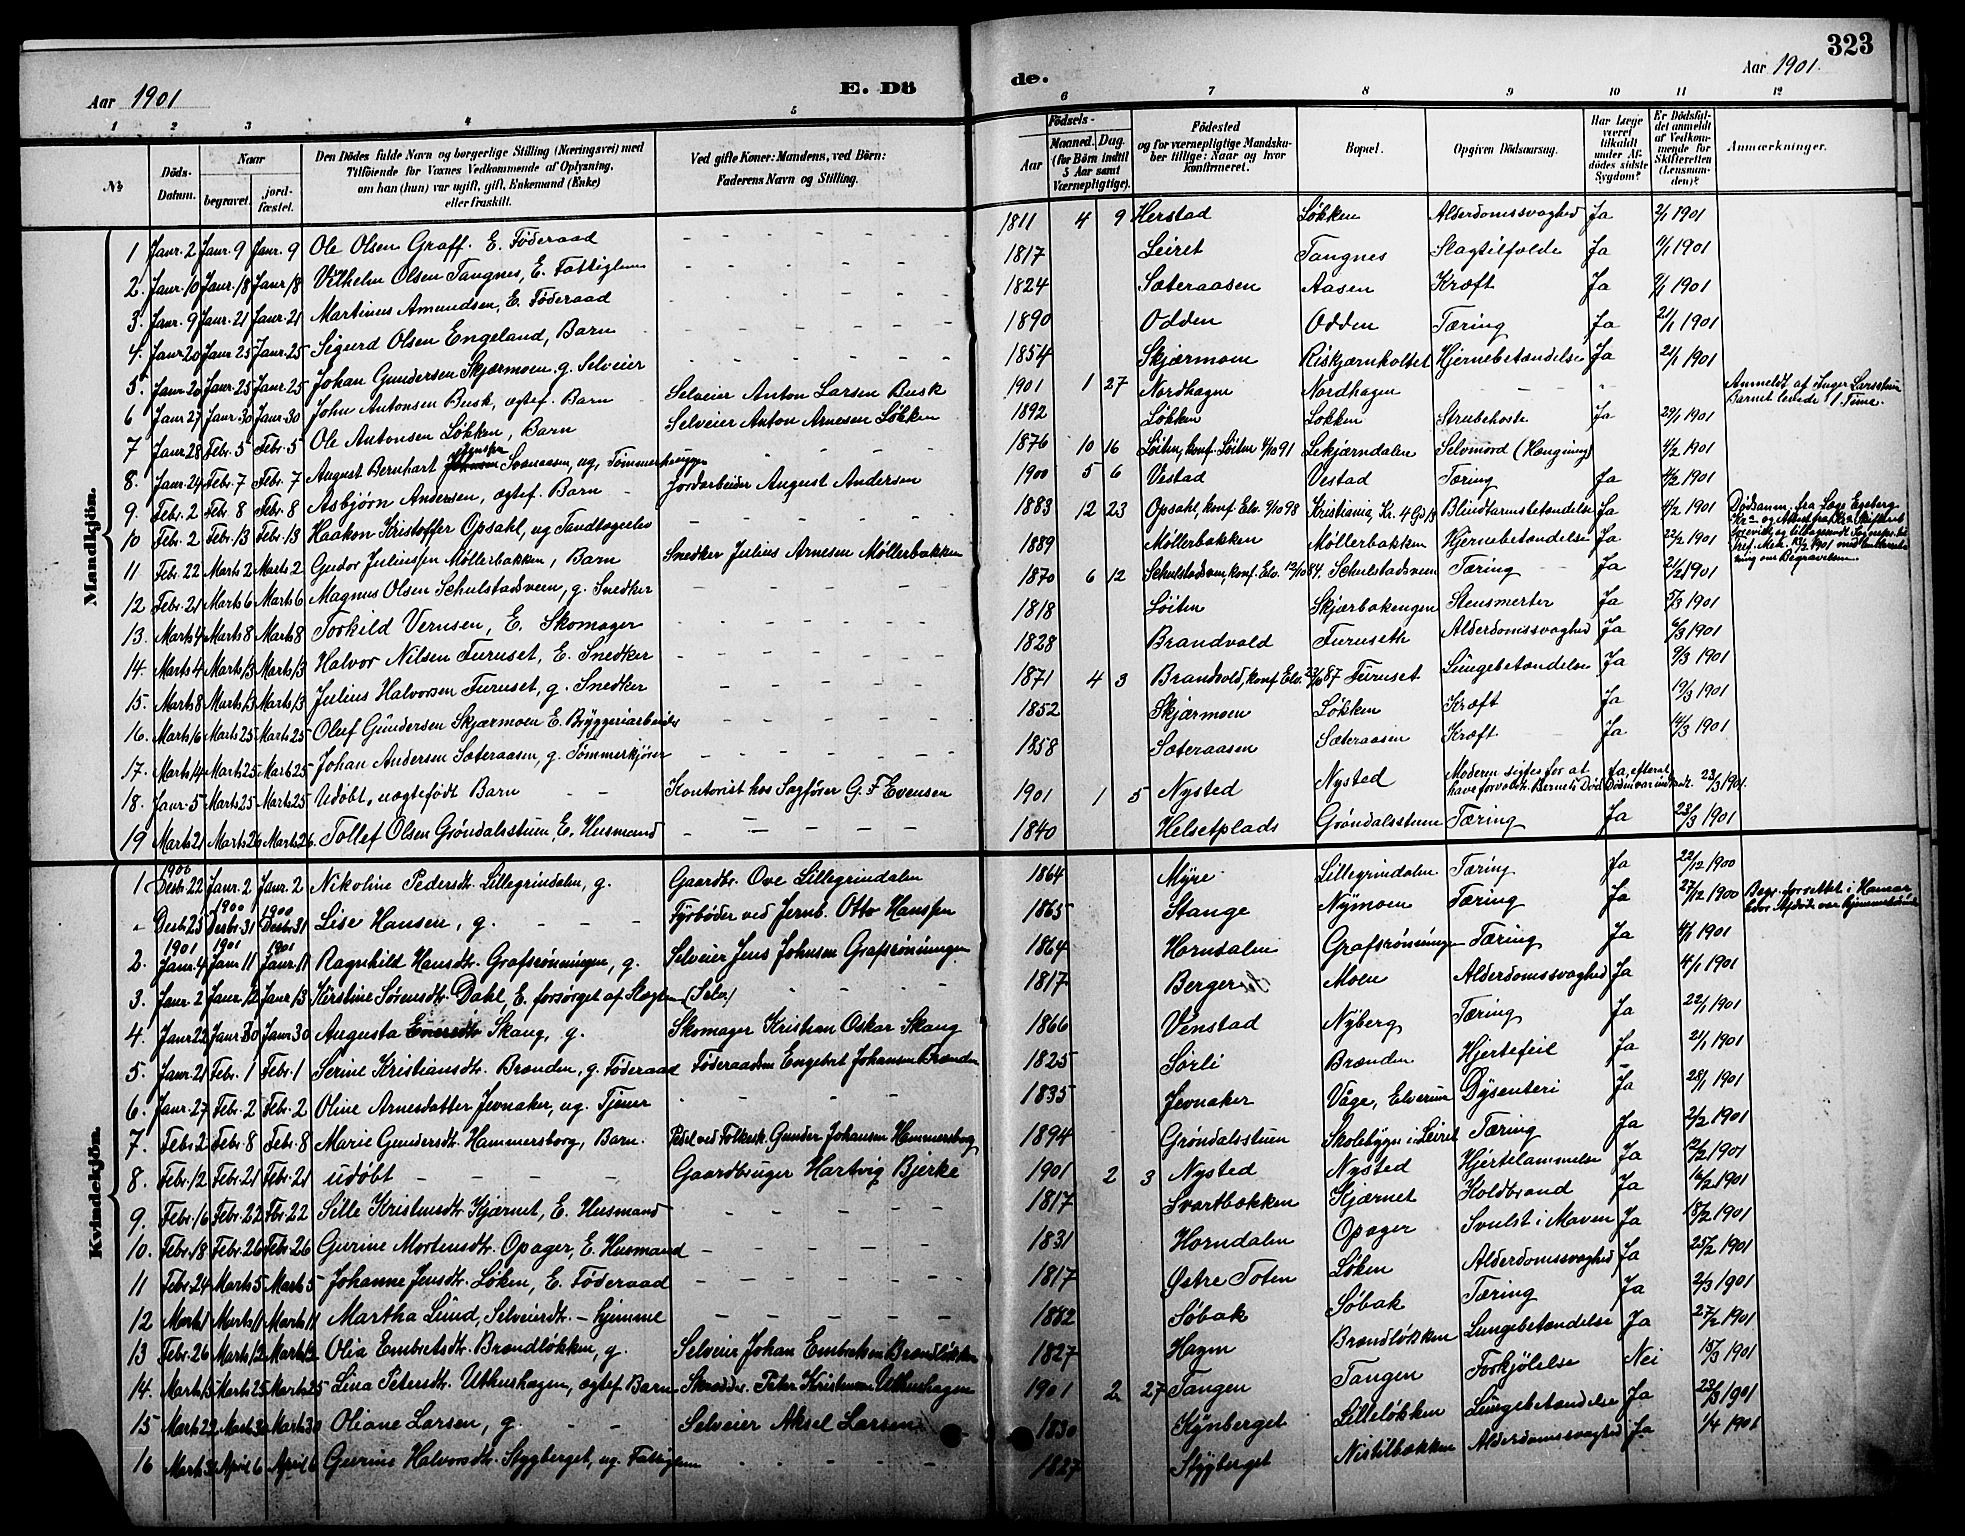 323
Aar 1901
E. Dö
de.
Aar 1901.
1 2 3 4 5 6 7 8 9 10 11 12
№
Döds-Datum.
Naar
begravet.
jord-fæstet.
Den Dödes fulde Navn og borgerlige Stilling (Næringsvei) med
Tilföiende for Voxnes Vedkommende af Oplysning,
om han (hun) var ugift, gift, Enkemand (Enke)
eller fraskilt.
Ved gifte Koner: Mandens, ved Börn:
Faderens Navn og Stilling.
Födsels-
Aar
Maaned. Dag.
(for Börn indtil
5 Aar samt
Værnepligtige).
Födested
og for værnepligtige Mandska-
ber tillige: Naar og hvor
konfirmeret.
Bopæl.
Opgiven Dödsaarsag.
Har Læge
været
tilkaldt
under Af-
dödes sidste
Sygdom?
Er Dödsfal-
det anmeldt
af Vedkom-
mende for
Skifteretten
(Lensman-
den)?
Anmærkninger.
Mandkjön.
1 Janr. 2 Janr. 9 Janr. 9 Ole Olsen Graff. E. Föderaad - - - 1811 4 9 Herstad Løkken Alderdomssvaghed Ja 2/1 1901
2. Janr. 10 Janr. 18 Janr. 18 Vilhelm Olsen Tangnes, E. Fattiglem - - - 1817 Leiret Tangnes Slagtilfælde Ja 11/1 1901
3. Janr. 9 Janr. 21 Janr. 21 Martinus Amundsen, E. Föderaad - - - 1824 Sæteraasen Aasen Kræft Ja 9/1 1901
4. Janr. 20 Janr. 25 Janr. 25 Sigurd Olsen Engeland, Barn - - - 1890 Odden Odden Tæring Ja 21/1 1901
5. Janr. 20 Janr. 25 Janr. 25 Johan Gundersen Skjærmoen g. Selveier - - - 1854 Skjærmoen Riskjærnholtet Hjernebetændelse Ja 21/1 1901
6 Janr. 27 Janr. 30 Janr. 30 John Antonsen Busk, ægtef. Barn Selveier Anton Larsen Busk 1901 1 27 Nordhagen Nordhagen - - " Anmeldt af Inger Larsstuen Barnet levede 1 Time.
7 Janr. 28 Febr. 5 Febr. 5 Ole Antonsen Løkken, Barn Selveier Anton Arnesen Løkken 1892 Løkken Løkken Strubehoste Ja 29/1 1901
8. Janr. 24 Febr. 7 Febr. 7 August Bernhart Svenssen, ug. Tømmerhugger - - - 1876 10 16 Løiten, konf. Løiten 4/10 91 Lekjærndalen Selvmord (Hængning) 4/2 1901
9. Febr. 2 Febr. 8 Febr. 8 Asbjørn Andersen, ægtef. Barn - Jordarbeider August Andersen 1900 5 6 Vestad Vestad Tæring Ja 4/2 1901
10 Febr. 2 Febr. 13 Febr. 13 Haakon Kristoffer Opsahl, ug - - - 1883 12 23 Opsahl, konf. Elv. 9/10 98 Kristiania, Kr. Blindtarmsbetændelse Ja 4/2 1901
11 Febr. 22 Marts 2 Marts 2 Gudor Juliussen Møllerbakken, Barn Snedker Julius Arnesen Møllerbakken 1889 Møllerbakken Møllerbakken Hjernebetændelse Ja 22/2 1901
12 Febr. 21 Marts 6 Marts 6 Magnus Olsen Schulstadsveen, g. Snedker - - - 1870 6 12 Schulstadsveen, konf. Elv. 12/10 84. Schulstadsveen Tæring Ja 21/2 1901
13. Marts 4 Marts 8 Marts 8 Torkild Vernsen, E. Skomager - - - 1818 Løiten Skjærbakengen Stensmerter Ja 5/3 1901
14. Marts 4 Marts 13 Marts 13 Halvor Nilsen Furuset, E. Snedker - - - 1828 Brandvold Furuseth Alderdomssvaghed Ja 6/3 1901
15. Marts 8 Marts 13 Marts 13 Julius Halvorsen Furuset, g. Snedker - - - 1871 4 3 Brandvold, konf. Elv. Furuset Lungebetændelse Ja 9/3 1901
16. Marts 16 Marts 25 Marts 25 Oluf Gundersen Skjærmoen E. Bryggeriarbeider - - - 1852 Skjærmoen Løkken Kræft Ja 19/3 1901
17. Marts 14 Marts 25 Marts 25 Johan Andersen Sæteraasen, g. Tømmerkjører - - - 1858 Sæteraasen Sæteraasen Kræft Ja 14/3 1901
18. Janr. 5 Marts 25 Marts 25 Udøbt, uægtefødt Barn - - Kontorist hos Sagfører G. F. Evensen 1901 1 5 Nysted Nysted Moderen sigtes for at have forvoldt Barnets Død Ja, efterat Døden var indtraadt. 23/3 1901.
19 Marts 21 Marts 26 Marts 26. Tollef Olsen Grøndalsstuen E. Husmand - - - 1840 Helsetplads Grøndalsstuen Tæring Ja 23/3 1901
Kvindekjön.
1 1900 Desbr. 22 Janr. 2 Janr. 2 Nikoline Pedersdtr. Lillegrindalen, g. Gaardbr. Ove Lillegrindalen 1864 Myre Lillegrindalen Tæring Ja 22/12 1900
" Desbr. 25 1900 Desbr. 31 1900 Desbr. 31 Lise Hansen, g. - - Fyrbøder ved Jernb. Otto Hanssen 1865 Stange Nymoen Tæring Ja 27/12 1900 Begr. forrettet i Hamar, hvor Afdøde var hjemmehørende
2. 1901 Janr. 4 1901 Janr. 11 1901 Janr. 11 Ragnhild Hansdtr. Grafsrønningen, g. Selveier Jens Johnsen Grafsrønningen 1864 Horndalen Grafsrønningen Tæring Ja 4/1 1901
3. Janr. 2 Janr. 12 Janr. 13 Kirstine Sørensdtr. Dahl, E. forsørget af Slægten (Selv.) - - - 1817 Berger Moen Alderdomssvaghed Ja 4/1 1901
4. Janr. 22 Janr. 30 Janr. 30 Augusta Skang, g. Skomager Kristian Oskar Skang 1866 Venstad Nyberg Tæring Ja 22/1 1901
5. Janr. 21 Febr. 1 Febr. 1 Serine Kristiansdtr. Brænden, g. Föderaad Föderaadsm. Engebret Johansen Brænden 1825 Sørli Brænden Hjertefeil Ja 21/1 1901
6. Janr. 27 Febr. 2 Febr. 2 Oline Arnesdatter Jevnaker, ug. Tjener - - - 1835 Jevnaker Vaage, Elverum Dysenteri Ja 28/1 1901
7 Febr. 2 Febr. 8 Febr. 8 Marie Gundersdtr. Hammersborg, Barn. Pedel ved Folkesk. Gunder Johansen Hammersborg 1894 Grøndalsstuen Skolebygn. i Leiret Tæring Ja 2/2 1901
8. Febr. 12 Febr. 21 Febr. 21 udøbt - - - Gaardbruger Hartvig Bjerke 1901 2 3 Nysted Nysted Hjertelammelse Ja 12/2 1901
9. Febr. 16 Febr. 22 Fbr. 22 Sille Kristensdtr. Kjærnet, E. Husmand - - - 1817 Svartbækken Kjærnet Koldbrand Ja 16/2 1901
10. Febr. 18 Febr. 26 Febr. 26 Gurine Mortensdtr. Opager, E. Husmand - - - 1831 Horndalen Opager Svulst i Maven Ja 18/2 1901
11 Febr. 24 Marts 5 Marts 5 Johanne Jensdtr. Løken, E. Föderaad - - - 1817 Østre Toten Løken Alderdomssvaghed Ja 25/2 1901
12 Marts 1 Marts 11 Marts 11 Martha Lund, Selveierdtr. - hjemme - - - 1882 Søbak Søbak Tæring Ja 2/3 1901
13 Febr. 26 Marts 12 Marts 12 Olia Embretsdtr. Brændløkken, g. Selveier Johan Embretsen Brændløkken 1827 Hagen Brændløkken Lungebetændelse Ja 27/2 1901
14. Marts 15 Marts 25 Marts 25 Lina Petersdtr. Uthushagen, ægtef. Barn Skrædder. Peter Kristiansen Uthushagen 1901 2 27 Tangen Tangen Forkjølelse Nei 15/3 1901
15 Marts 22 Marts 30 Marts 30 Oliane Larsen, g. - - Selveier Aksel Larsen 1830 Kynberget Lilleløkken Lungebetændelse Ja 23/3 1901
16 Marts 31 April 6 April 6 Gurine Halvorsdtr. Stygberget, ug. Fattiglem - - - 1827 Stygberget Nistilbakken Alderdomssvaghed Ja 1/4 1901